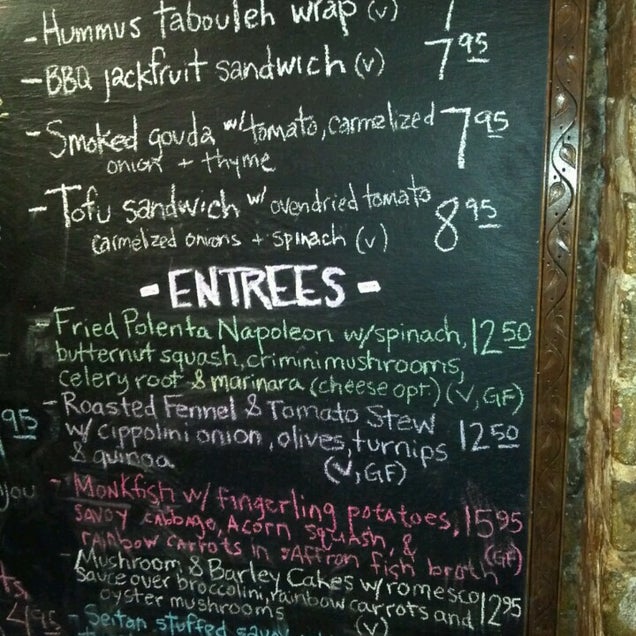 - Hummus tabouleh wrap (v) 7
- BBQ jackfruit sandwich (v) 7 95
- Smoked gouda w/ tomato, carmelized 7 95
onion + thyme
- Tofu sandwich w/ ovendried tomato 8 95
carmelzed onions + spinach (v)
- ENTREES -
- Fried Polenta Napoleon w/spinach, 12 50
butternut squash, crimini mushrooms,
celery root & marinara (cheese opt.) (V, GF)
- Roasted Fennel & Tomato Stew
w/ cippolini onion, olives, turnips 12 50
& quinoa (V, GF)
- Monkfish w/ fingerling potatoes, 15 95
savoy cabbage, Acorn squash, &
rainbow carrots in saffron fish broth (GF)
- Mushroom & Barley Cakes w/ romesco
sauce over broccolini, rainbow carrots and 12 95
oyster mushrooms (V)
- Seitan stuffed savoy
95
you
ts,
4 95